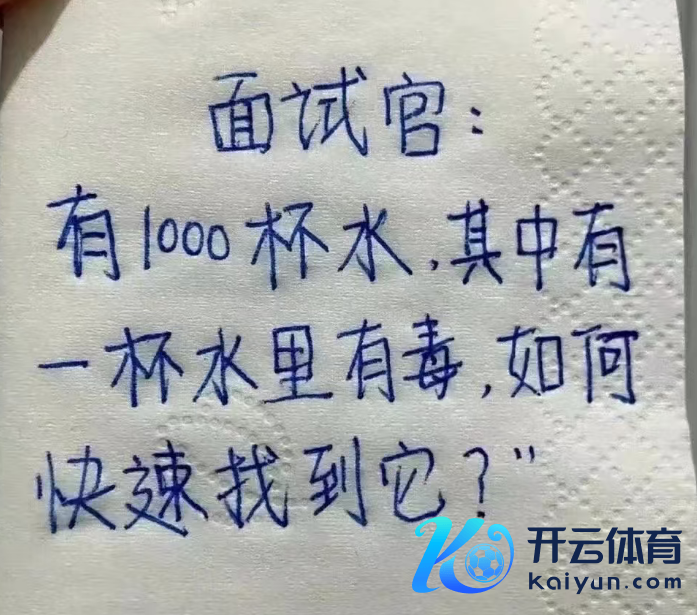 面试官:
有1000杯水,其中有
一杯水里有毒,如何
快速找到它?"
开云体育
kaiyun.com